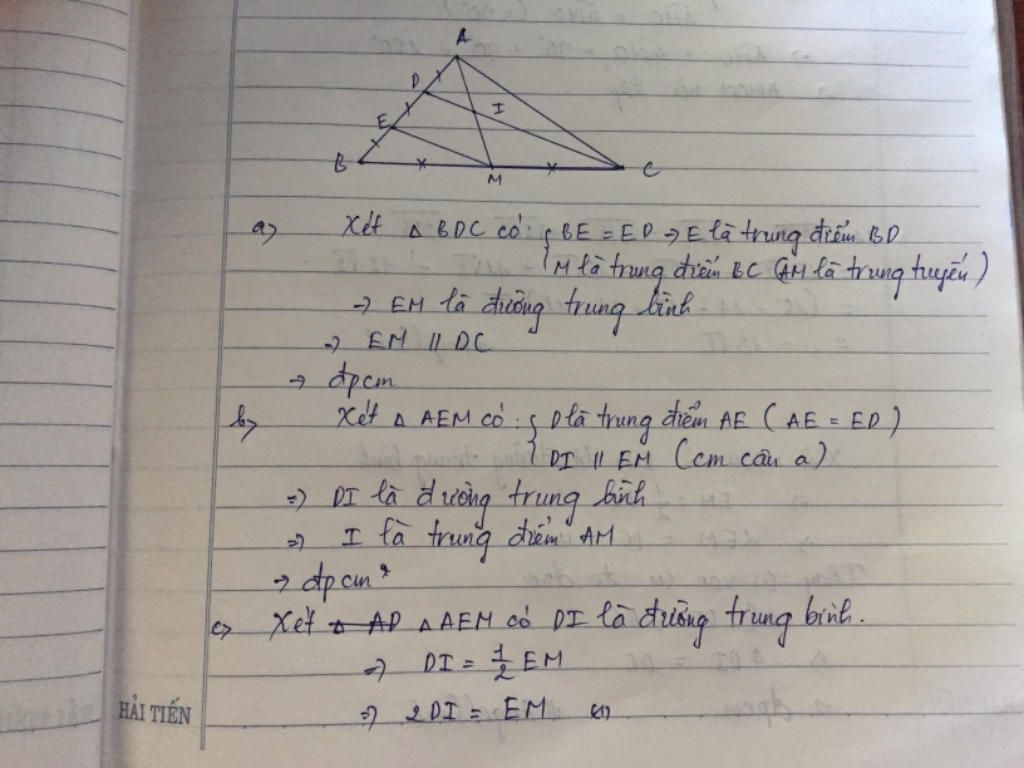 A
D
I
E
B
M
C
a) Xét △ BDC có: { BE = ED → E là trung điểm BD
M là trung điểm BC (AM là trung tuyến)
⇒ EM là đường trung bình
⇒ EM // DC
→ đpcm
b) Xét △ AEM có: { D là trung điểm AE (AE = ED)
DI // EM (cm câu a)
⇒ DI là đường trung bình
⇒ I là trung điểm AM
→ đpcm
c) Xét △ AD △ AEM có DI là đường trung bình.
⇒ DI = 1/2 EM
⇒ 2DI = EM (1)
HẢI TIẾN